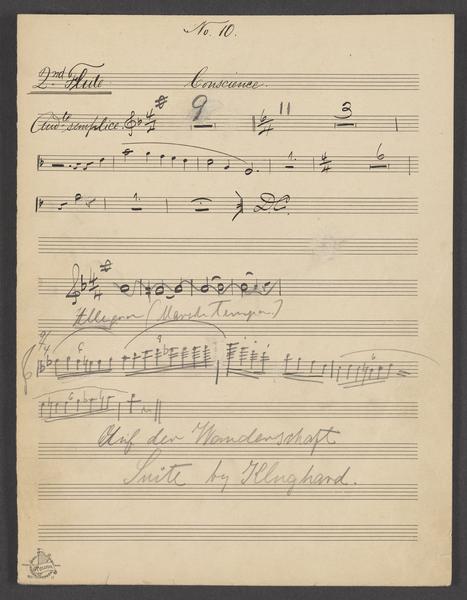 No. 10.
2nd Flute Conscience.
Andte semplice. 4/4 9 6/4 11 3
1. 4/4 6
1. D.C.
4/4
Allegro (March Tempo.)
2/4 6 8 6
6
Auf der Wanderschaft
Suite by Klughard.